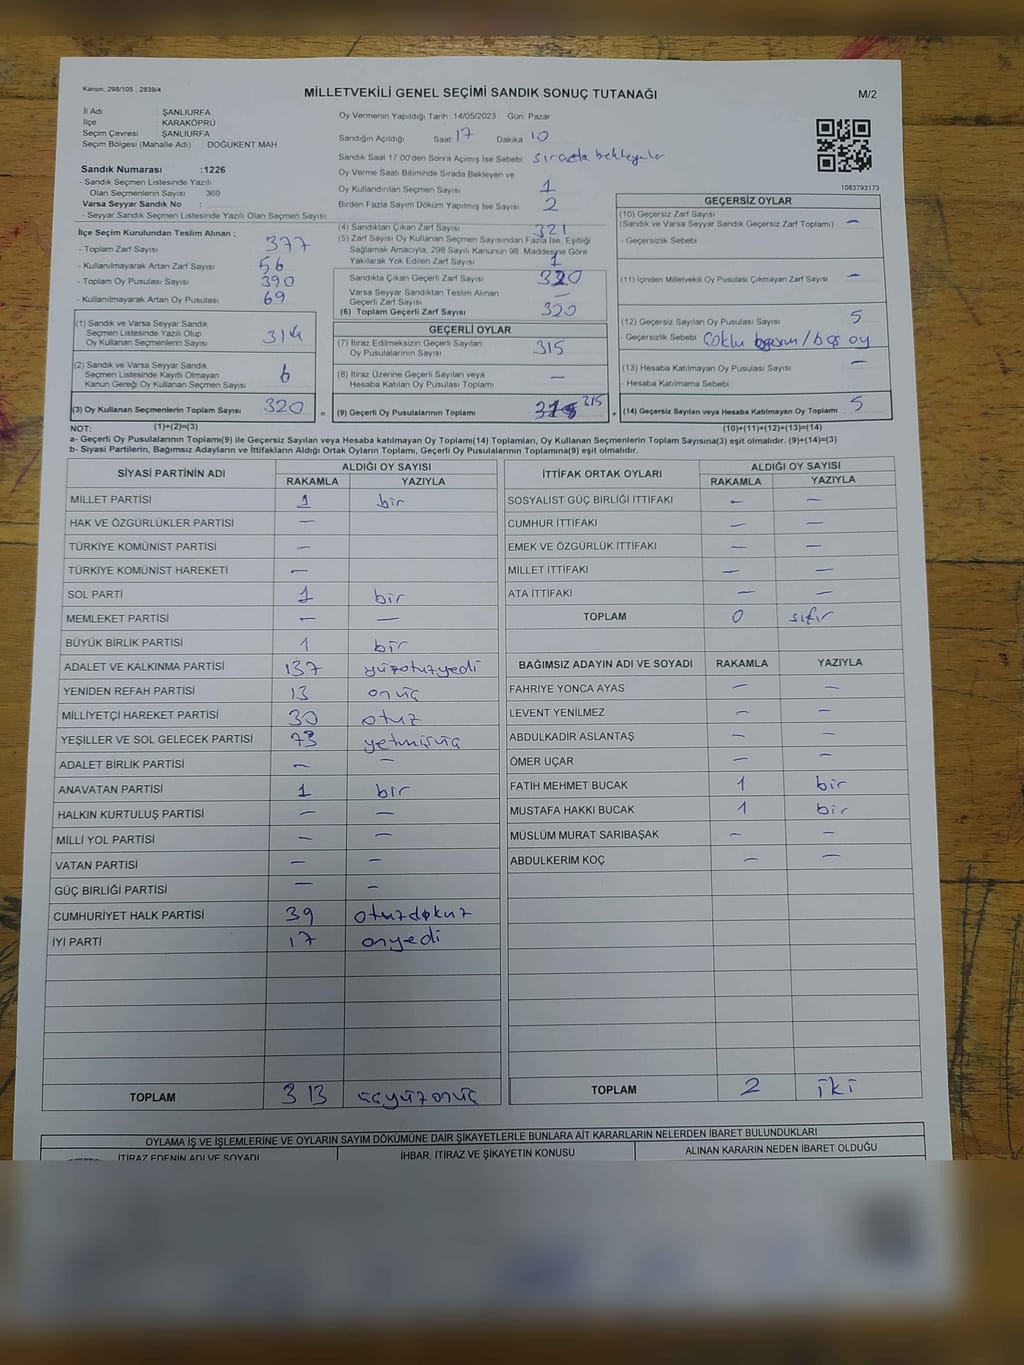 Kanun, 298/105 , 2839/4
MİLLETVEKİLİ GENEL SEÇİMİ SANDIK SONUÇ TUTANAĞI
M/2
İl Adı ŞANLIURFA
İlçe KARAKÖPRÜ
Seçim Çevresi ŞANLIURFA
Seçim Bölgesi (Mahalle Adı) : DOĞUKENT MAH
Oy Vermenin Yapıldığı Tarih 14/05/2023 Gün: Pazar
Sandığın Açıldığı Saat 17 Dakika 10
Sandık Saat 17:00'den Sonra Açılmış İse Sebebi sırada bekleyenler
Oy Verme Saati Bitiminde Sırada Bekleyen ve
Oy Kullandırılan Seçmen Sayısı 1
Birden Fazla Sayım Döküm Yapılmış İse Sayısı 2
1083793173
Sandık Numarası :1226
- Sandık Seçmen Listesinde Yazılı
Olan Seçmenlerin Sayısı 369
Varsa Seyyar Sandık No :
- Seyyar Sandık Seçmen Listesinde Yazılı Olan Seçmen Sayısı:
İlçe Seçim Kurulundan Teslim Alınan ;
- Toplam Zarf Sayısı 377
- Kullanılmayarak Artan Zarf Sayısı 56
- Toplam Oy Pusulası Sayısı 390
- Kullanılmayarak Artan Oy Pusulası 69
(1) Sandık ve Varsa Seyyar Sandık
Seçmen Listesinde Yazılı Olup
Oy Kullanan Seçmenlerin Sayısı 314
(2) Sandık ve Varsa Seyyar Sandık
Seçmen Listesinde Kayıtlı Olmayan
Kanun Gereği Oy Kullanan Seçmen Sayısı 6
(3) Oy Kullanan Seçmenlerin Toplam Sayısı 320 =
(4) Sandıktan Çıkan Zarf Sayısı 321
(5) Zarf Sayısı Oy Kullanan Seçmen Sayısından Fazla İse, Eşitliği
Sağlamak Amacıyla, 298 Sayılı Kanunun 98. Maddesine Göre
Yakılarak Yok Edilen Zarf Sayısı 1
Sandıkta Çıkan Geçerli Zarf Sayısı 320
Varsa Seyyar Sandıktan Teslim Alınan
Geçerli Zarf Sayısı —
(6) Toplam Geçerli Zarf Sayısı 320
GEÇERLİ OYLAR
(7) İtiraz Edilmeksizin Geçerli Sayılan
Oy Pusulalarının Sayısı 315
(8) İtiraz Üzerine Geçerli Sayılan veya
Hesaba Katılan Oy Pusulası Toplamı —
(9) Geçerli Oy Pusulalarının Toplamı 315 +
GEÇERSİZ OYLAR
(10) Geçersiz Zarf Sayısı
(Sandık ve Varsa Seyyar Sandık Geçersiz Zarf Toplamı) —
- Geçersizlik Sebebi
(11) İçinden Milletvekili Oy Pusulası Çıkmayan Zarf Sayısı —
(12) Geçersiz Sayılan Oy Pusulası Sayısı 5
- Geçersizlik Sebebi Çoklu basım / boş oy
(13) Hesaba Katılmayan Oy Pusulası Sayısı —
- Hesaba Katılmama Sebebi
(14) Geçersiz Sayılan veya Hesaba Katılmayan Oy Toplamı 5
NOT: (1)+(2)=(3) (10)+(11)+(12)+(13)=(14)
a- Geçerli Oy Pusulalarının Toplamı(9) ile Geçersiz Sayılan veya Hesaba katılmayan Oy Toplamı(14) Toplamları, Oy Kullanan Seçmenlerin Toplam Sayısına(3) eşit olmalıdır. (9)+(14)=(3)
b- Siyasi Partilerin, Bağımsız Adayların ve İttifakların Aldığı Ortak Oyların Toplamı, Geçerli Oy Pusulalarının Toplamına(9) eşit olmalıdır.
SİYASİ PARTİNİN ADI ALDIĞI OY SAYISI
RAKAMLA YAZIYLA
MİLLET PARTİSİ 1 bir
HAK VE ÖZGÜRLÜKLER PARTİSİ —
TÜRKİYE KOMÜNİST PARTİSİ —
TÜRKİYE KOMÜNİST HAREKETİ —
SOL PARTİ 1 bir
MEMLEKET PARTİSİ — —
BÜYÜK BİRLİK PARTİSİ 1 bir
ADALET VE KALKINMA PARTİSİ 137 yüzotuzyedi
YENİDEN REFAH PARTİSİ 13 onüç
MİLLİYETÇİ HAREKET PARTİSİ 30 otuz
YEŞİLLER VE SOL GELECEK PARTİSİ 73 yetmişüç
ADALET BİRLİK PARTİSİ — —
ANAVATAN PARTİSİ 1 bir
HALKIN KURTULUŞ PARTİSİ — —
MİLLİ YOL PARTİSİ — —
VATAN PARTİSİ — —
GÜÇ BİRLİĞİ PARTİSİ — —
CUMHURİYET HALK PARTİSİ 39 otuzdokuz
İYİ PARTİ 17 onyedi
TOPLAM 313 üçyüzonüç
İTTİFAK ORTAK OYLARI ALDIĞI OY SAYISI
RAKAMLA YAZIYLA
SOSYALİST GÜÇ BİRLİĞİ İTTİFAKI — —
CUMHUR İTTİFAKI — —
EMEK VE ÖZGÜRLÜK İTTİFAKI — —
MİLLET İTTİFAKI — —
ATA İTTİFAKI — —
TOPLAM 0 sıfır
BAĞIMSIZ ADAYIN ADI VE SOYADI RAKAMLA YAZIYLA
FAHRİYE YONCA AYAS — —
LEVENT YENİLMEZ — —
ABDULKADİR ASLANTAŞ — —
ÖMER UÇAR — —
FATİH MEHMET BUCAK 1 bir
MUSTAFA HAKKI BUCAK 1 bir
MÜSLÜM MURAT SARIBAŞAK — —
ABDULKERİM KOÇ — —
TOPLAM 2 iki
OYLAMA İŞ VE İŞLEMLERİNE VE OYLARIN SAYIM DÖKÜMÜNE DAİR ŞİKAYETLERLE BUNLARA AİT KARARLARIN NELERDEN İBARET BULUNDUKLARI
İTİRAZ EDENİN ADI VE SOYADI İHBAR, İTİRAZ VE ŞİKAYETİN KONUSU ALINAN KARARIN NEDEN İBARET OLDUĞU